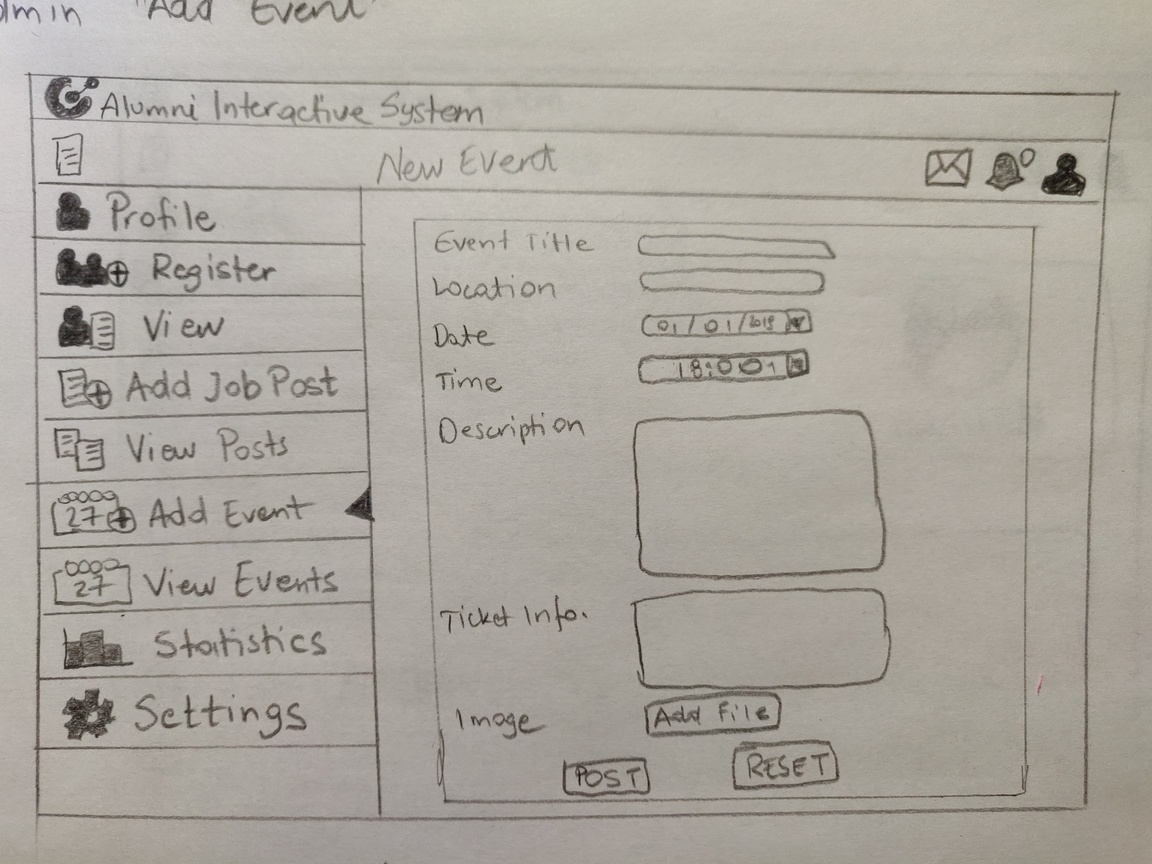 dmin "Add Event"
Alumni Interactive System
New Event
Profile
Register
View
Add Job Post
View Posts
27 Add Event
27 View Events
Statistics
Settings
Event Title
Location
Date 01/01/2019
Time 18:00
Description
Ticket Info.
Image Add File
POST RESET